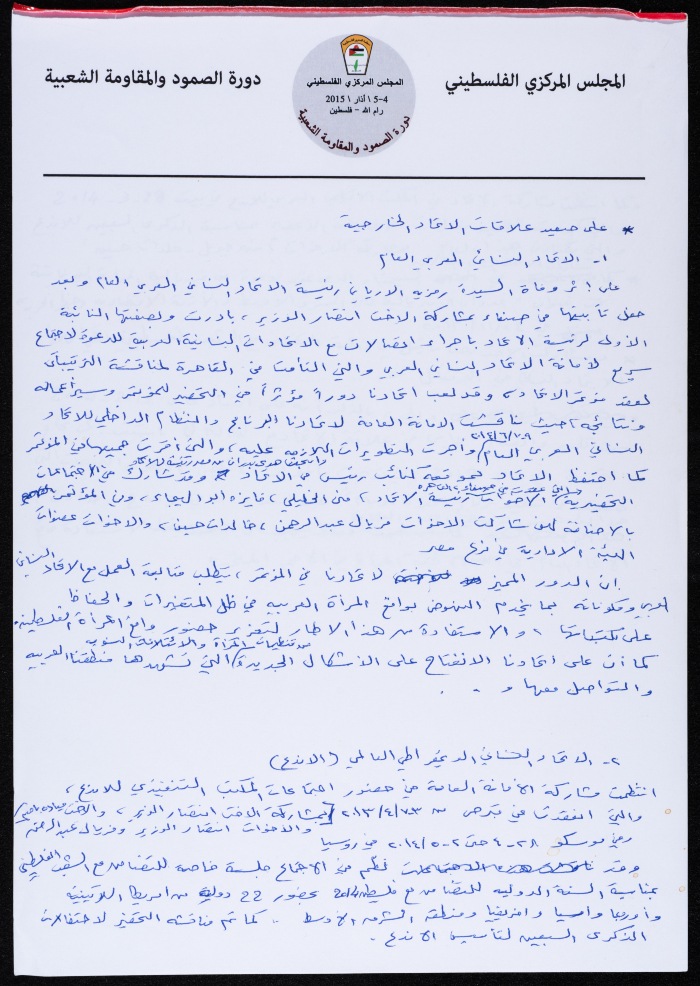 المجلس المركزي الفلسطيني
المجلس المركزي الفلسطيني
4-5 \ آذار \ 2015
رام الله - فلسطين
دورة الصمود والمقاومة الشعبية
دورة الصمود والمقاومة الشعبية
* على صعيد علاقات الاتحاد الخارجية
١- الاتحاد النسائي العربي العام
على إثر وفاة السيدة رمزية الارياني رئيسة الاتحاد النسائي العربي العام وبعد
حفل تأبينها في صنعاء بمشاركة الاخت انتصار الوزير، بادرت وبصفتها النائبة
الأولى لرئيسة الاتحاد باجراء اتصالات مع الاتحادات النسائية العربية للدعوة لاجتماع
سريع لأمانة الاتحاد النسائي العربي والتي التأمت في القاهرة لمناقشة الترتيبات
لعقد مؤتمر الاتحاد، وقد لعب اتحادنا دوراً مؤثراً في التحضير للمؤتمر وسير أعماله
ونتائجه، حيث ناقشت الامانة العامة لاتحادنا البرنامج والنظام الداخلي للاتحاد
النسائي العربي العام وأجرت التطويرات اللازمة عليه، والتي أقرت جميعها في المؤتمر
كما احتفظ الاتحاد بموقعه كنائب رئيس في الاتحاد وقد شارك في الاجتماعات
التحضيرية الاخوات رئيسة الاتحاد، منى الخليلي، فايزة ابو الهيجاء، وفي المؤتمر
بالاضافة لهن شاركت الاخوات فريال عبد الرحمن، خالدات حسين، والاخوات عضوات
الهيئة الادارية في فرع مصر
إن الدور المميز لاتحادنا في المؤتمر، يتطلب متابعة العمل مع الاتحاد النسائي
العربي ومكوناته بما يخدم النهوض بواقع المرأة العربية في ظل المتغيرات والحفاظ
على مكتسباتها، والاستفادة من هذا الاطار لتعزيز حضور واقع المرأة الفلسطينية
كما أن على اتحادنا الانفتاح على الأشكال الجديدة من تنظيمات المرأة والائتلافات النسوية التي تشهدها منطقتنا العربية
والتواصل معها و..
٢- الاتحاد النسائي الديمقراطي العالمي (الاندع)
انتظمت مشاركة الأمانة العامة في حضور اجتماعات المكتب التنفيذي للاندع،
والتي انعقدت في قبرص من ٢٣-٧/٤/٢٠١٣ بمشاركة الاخت انتصار الوزير، والاخت
والاخوات انتصار الوزير وفريال عبد الرحمن
وفي موسكو ٢٨-٤ حتى ٢-٥/٢٠١٤ في روسيا
وقد نظم في الاجتماع جلسة خاصة للتضامن مع الشعب الفلسطيني
بمناسبة السنة الدولية للتضامن مع فلسطين 2014 بحضور 22 دولة من امريكا اللاتينية
وأوروبا وآسيا وافريقيا ومنطقة الشرق الأوسط.. كما تم مناقشة التحضير لاحتفالات
الذكرى السبعين لتأسيس الاندع.